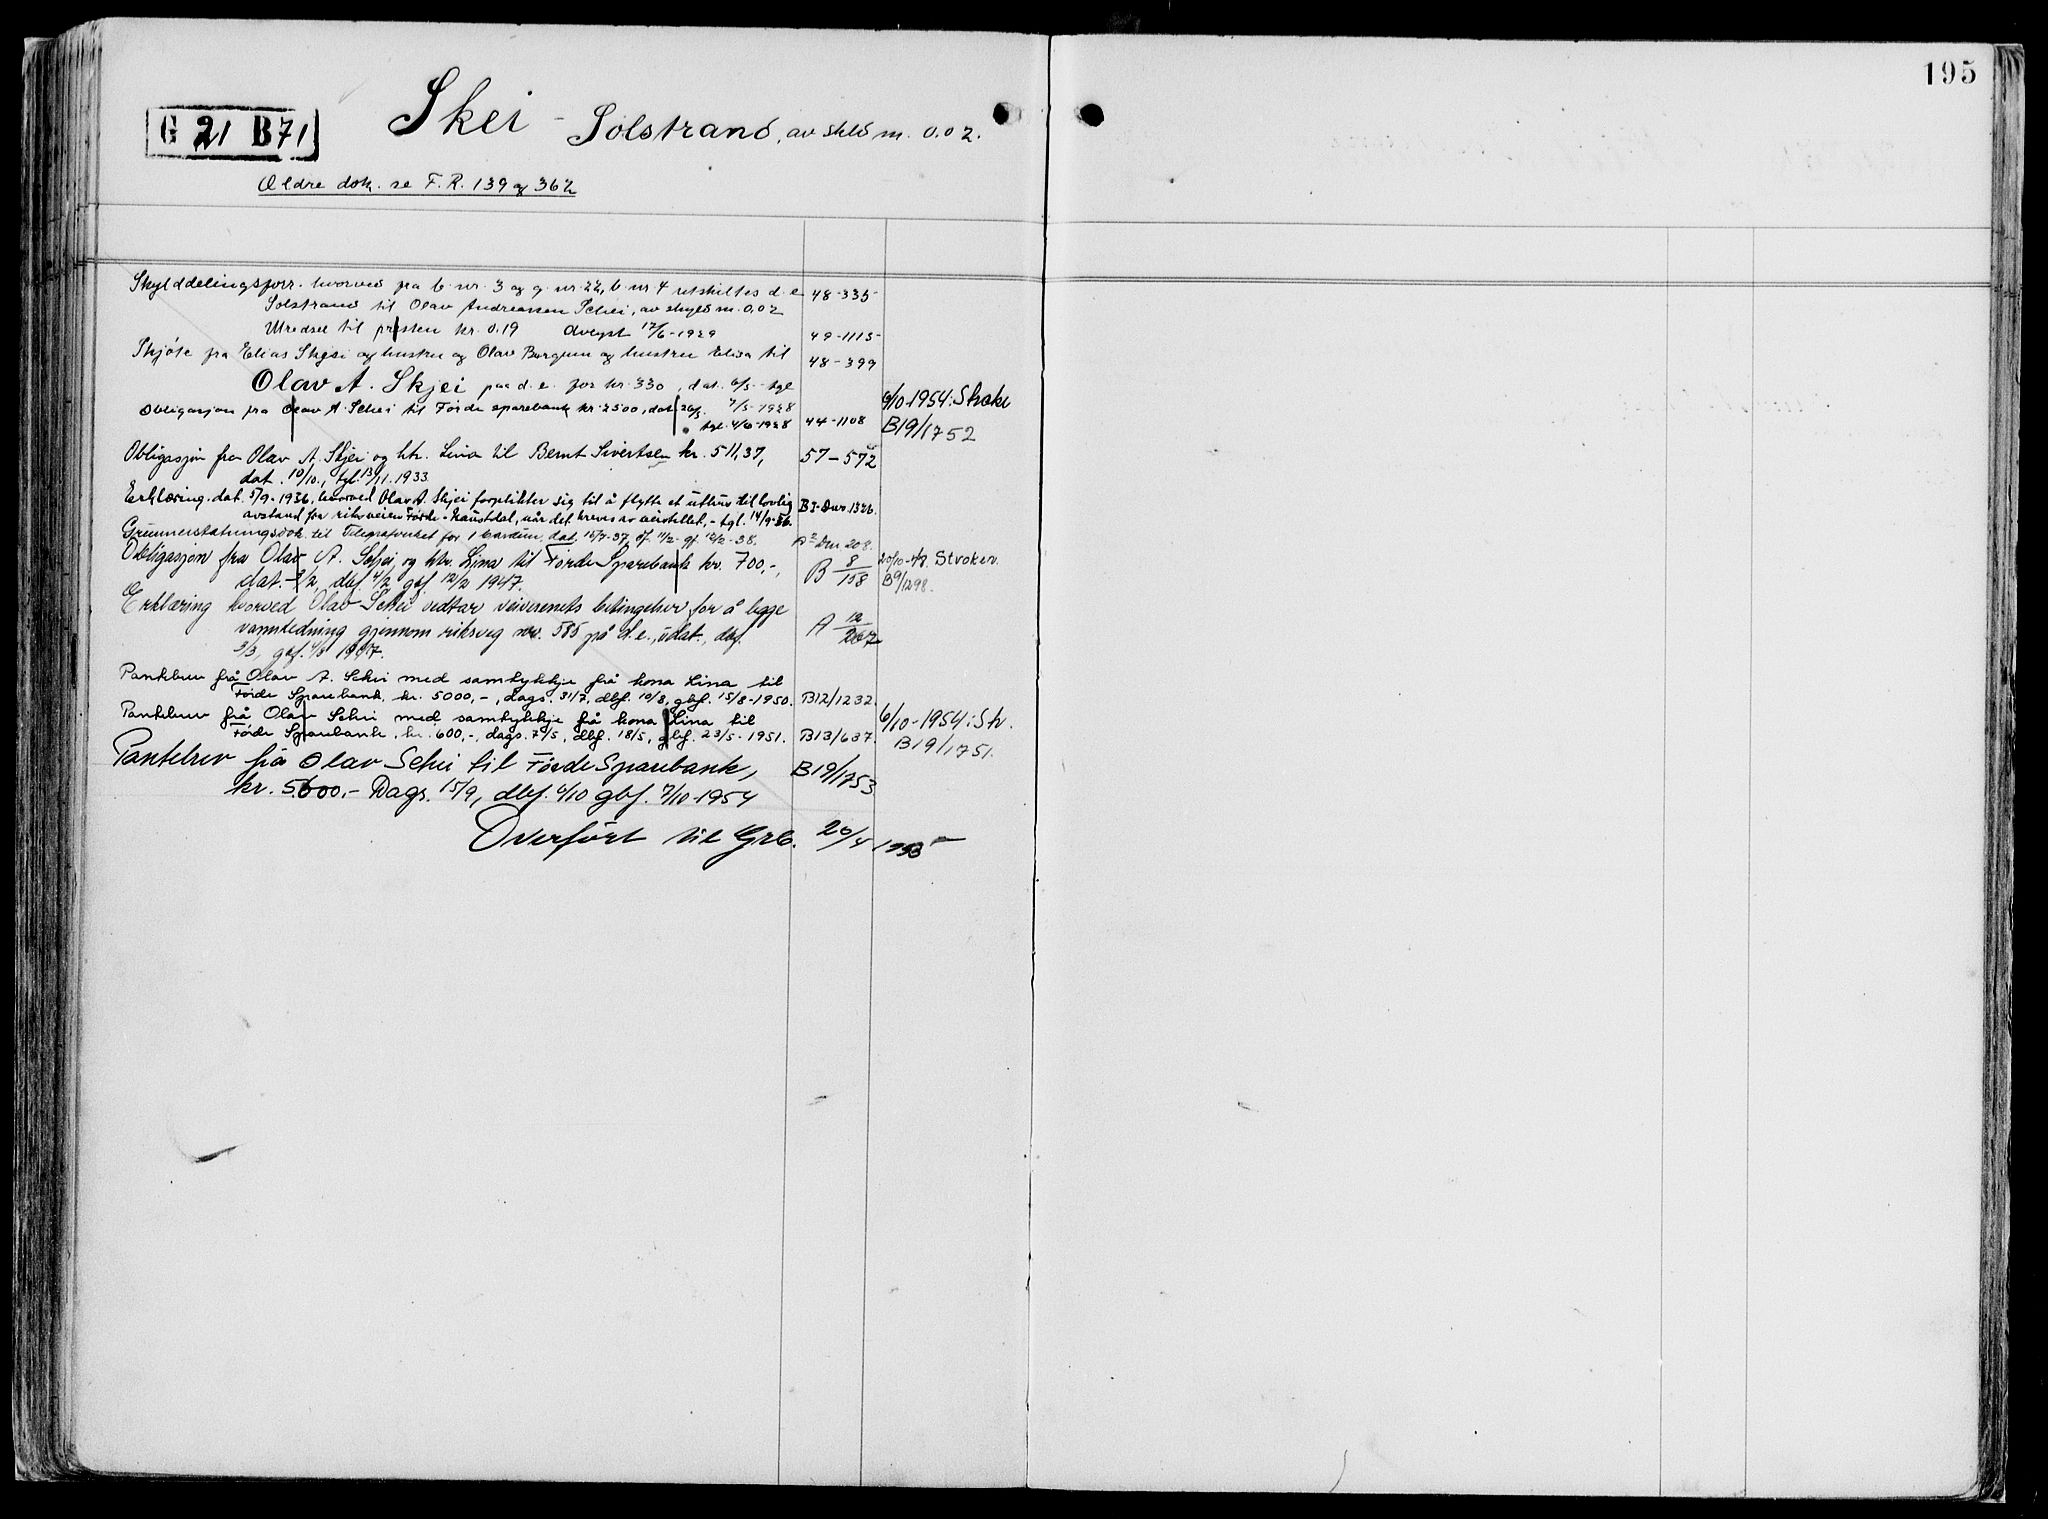 195
G 21 B 71
Skei - Solstrand, av skld m. 0.02.
Ældre dok. se F.R. 139 og 362
Skylddelingsforr. hvorved fra b. nr. 3 og g. nr. 22, b. nr 4 utskiltes d. e. 48-335
Solstrand til Olav Andreassen Schei, av skyld m. 0,02
Utredsel til presten kr. 0.19 Avlyst 17/6-1929 49-1115
Skjöte fra Elias Skjei og hustru og Olav Bergum og hustru Elisa til 48-399
Olav A. Skjei paa d. e. for kr. 330, dat. 6/5 - tgl
7/5-1928
Obligasjon fra Olav A. Schei til Förde sparebank kr. 2500, dat 26/5. 6/10-1954: Stroke
tgl. 4/6-1928 44-1108 B19/1752
Obligasjon fra Olav A. Skjei og htr. Lina til Bernt Sivertsen kr. 511,37, 57-572
dat. 10/10., tgl. 13/11. 1933
Erklæring, dat. 5/9-1936, hvorved Olav A. Skjei forplikter sig til å flytte et uthus til lovlig B3-Dnr 1326.
avstand fra riksveien Förde-Naustdal, når det kreves av veivesenet, - tgl. 14/9-36.
Grunnerstatningsdok. til Telegrafverket for 1 bardun, dat. 15/7-37, df. 11/2- gf. 12/2-38. A2 Dnr 208.
Obligasjon fra Olav A. Schei og htr. Lina til Förde Sparebank kr. 700,-, B 8/158 20/10-48. Stroken.
dat. 3/2, dbf 4/2 gbf 12/2 1947. B9/1298.
Erklæring hvorved Olav Schei vedtar veivesenets betingelser for å legge A 12/267
vannledning gjennom riksveg nr. 585 på d.e., udat., dbf.
3/3, gbf. 4/3 1947.
Pantebrev frå Olav A. Schei med samtykkje frå kona Lina til
Förde Sparebank, kr. 5000,-, dags. 31/7, dbf. 10/8, gbf. 15/8-1950. B12/1232.
Pantebrev frå Olav Schei med samtykkje frå kona Lina til 6/10-1954: Str.
Förde Sparebank, kr. 600,-, dags. 7/5, dbf. 18/5, gbf. 23/5-1951. B13/637. B19/1751.
Pantebrev frå Olav Schei til Förde Sparebank, B19/1753
kr. 5600,- Dags. 15/9, dbf. 4/10 gbf. 7/10-1954
Overfört til Grb. 20/4